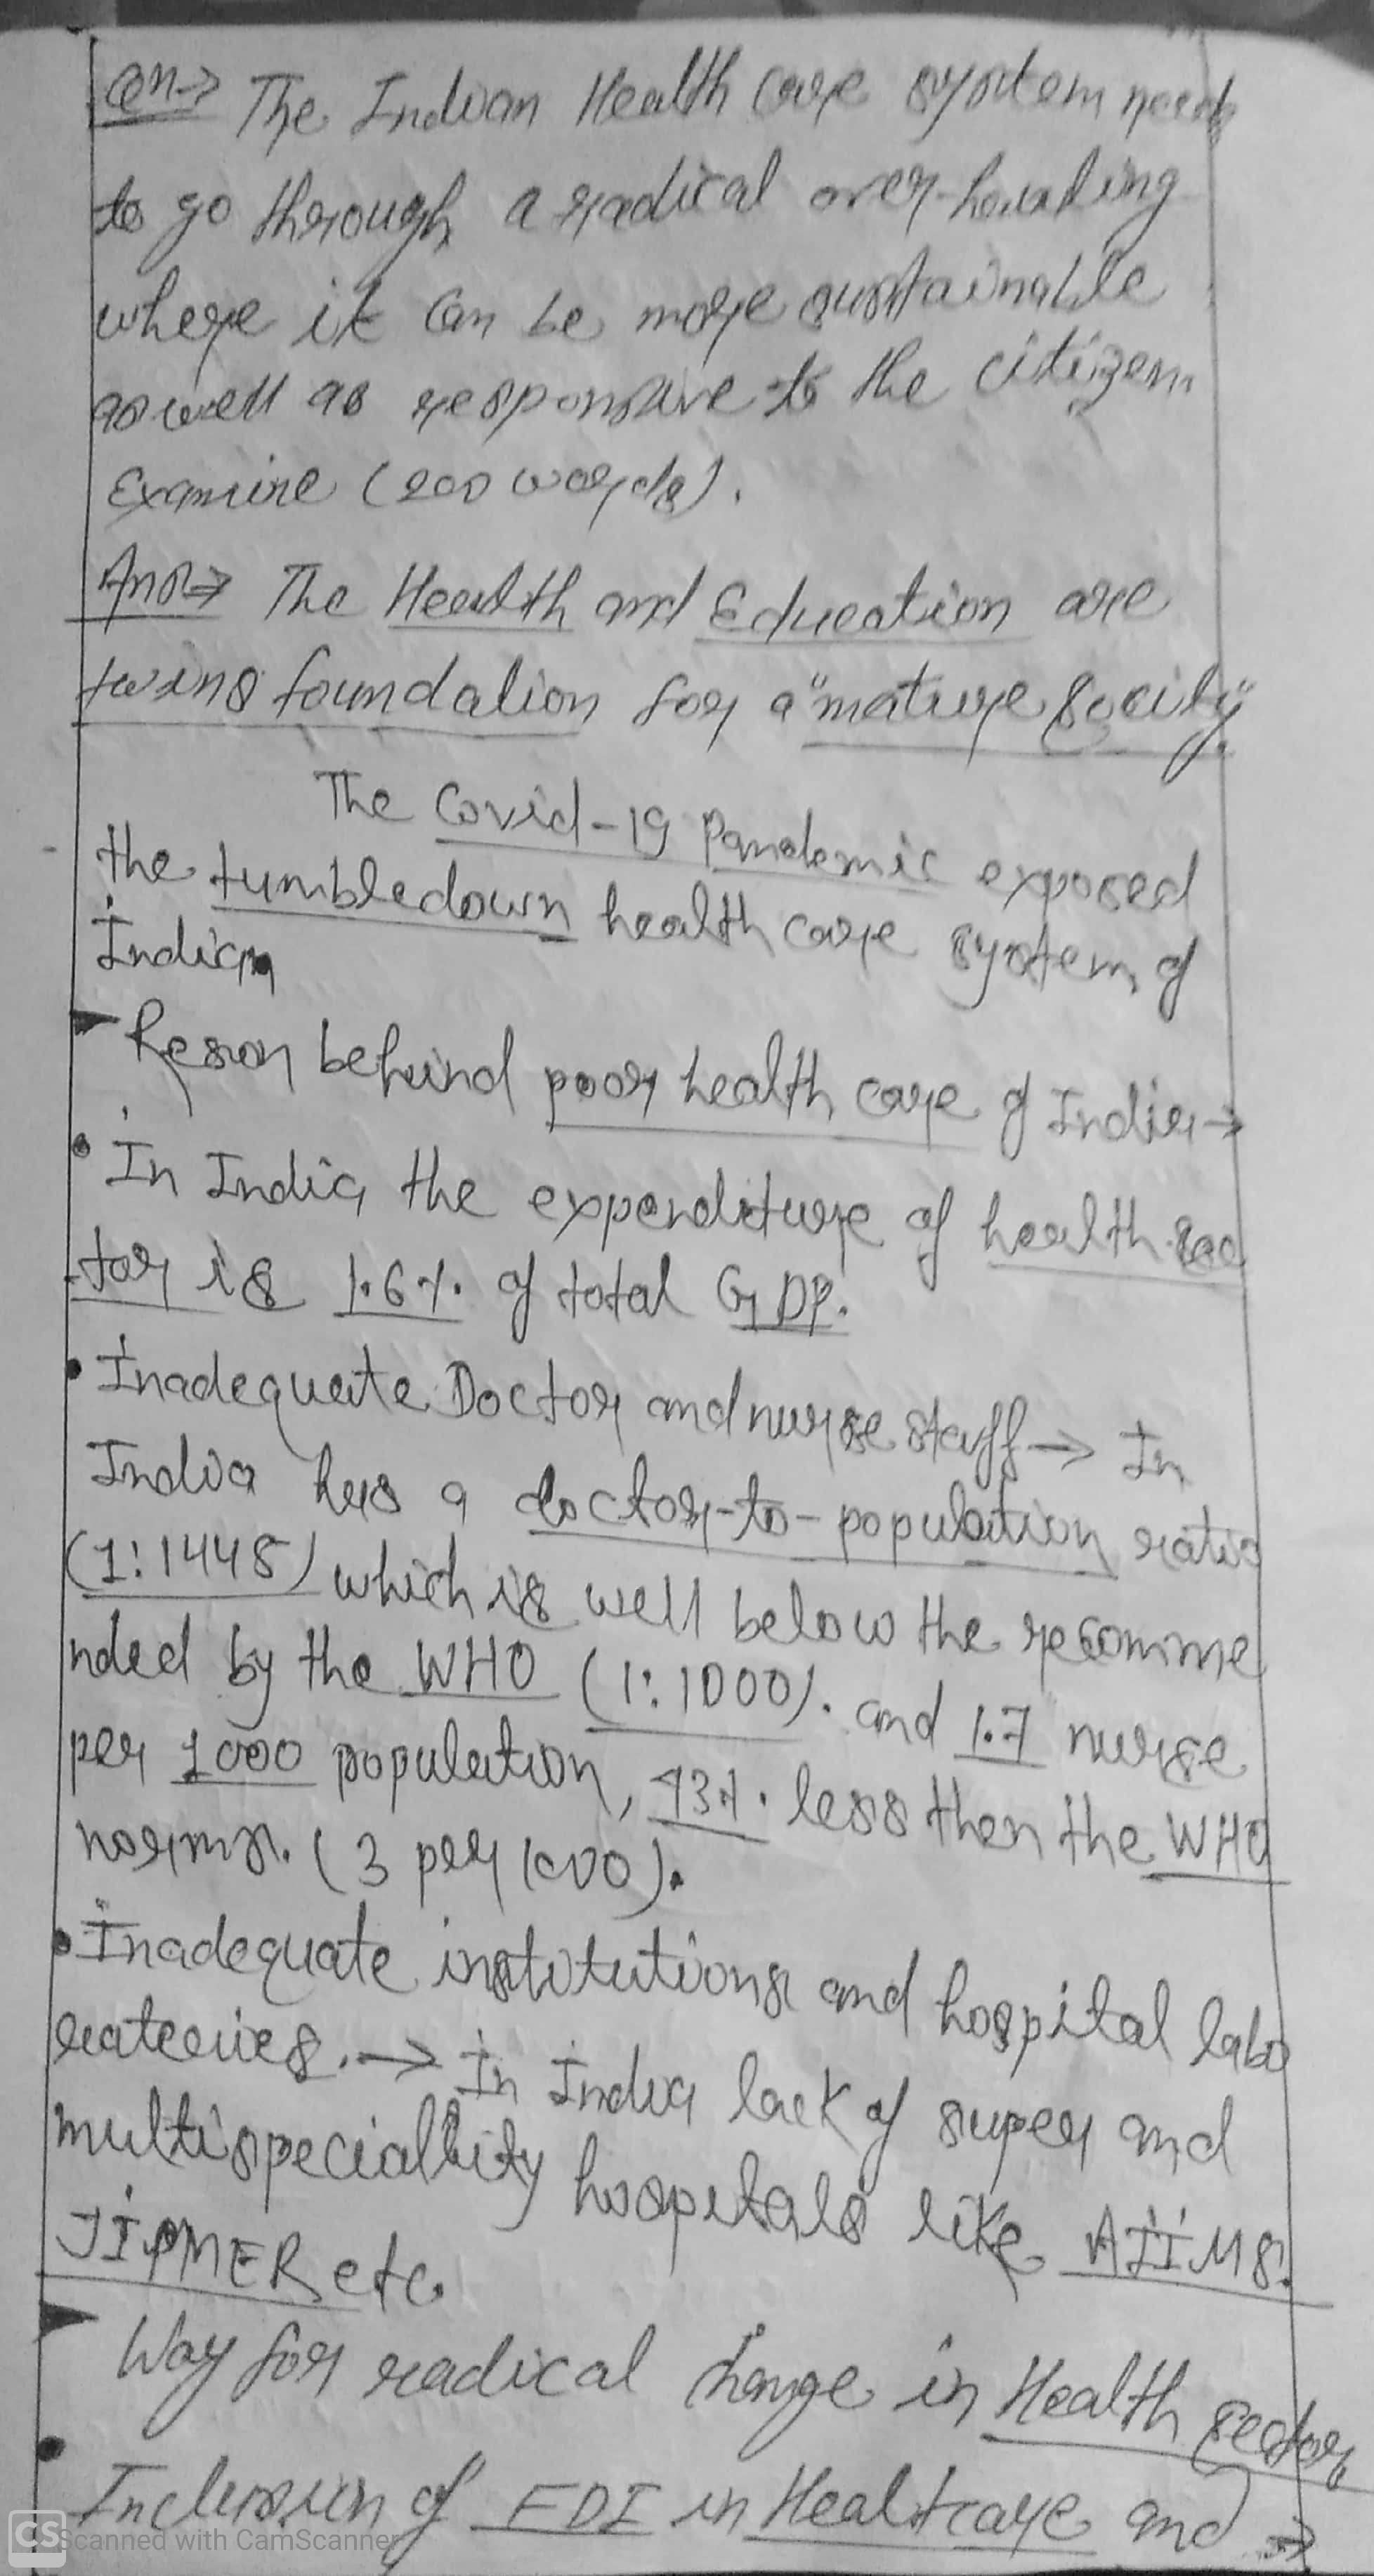 Qn→ The Indian Health care system needs
to go through a radical over-hauling
where it can be more sustainable
as well as responsive to the citizen.
Examine (200 words).
Ans⇒ The Health and Education are
twins foundation for a "mature socity".
The Covid-19 Pandemic exposed
the tumbledown health care system of
Indian
Reson behind poor health care of India→
• In India the expenditure of health sec
tor is 1.6%. of total GDP.
• Inadequate Doctor and nurse staff → In
India has a doctor-to-population ratio
(1:1445) which is well below the recomme
nded by the WHO (1:1000). and 1.7 nurse
per 1000 population, 43%. less then the WHO
norms. (3 per 1000).
• Inadequate institutions and hospital labo
ratories. → In India lack of super and
multispeciallity hospitals like AIIMS.
JIPMER etc.
Way for radical change in Health sector
• Inclusion of FDI in Healthcare and →
CS Scanned with CamScanner